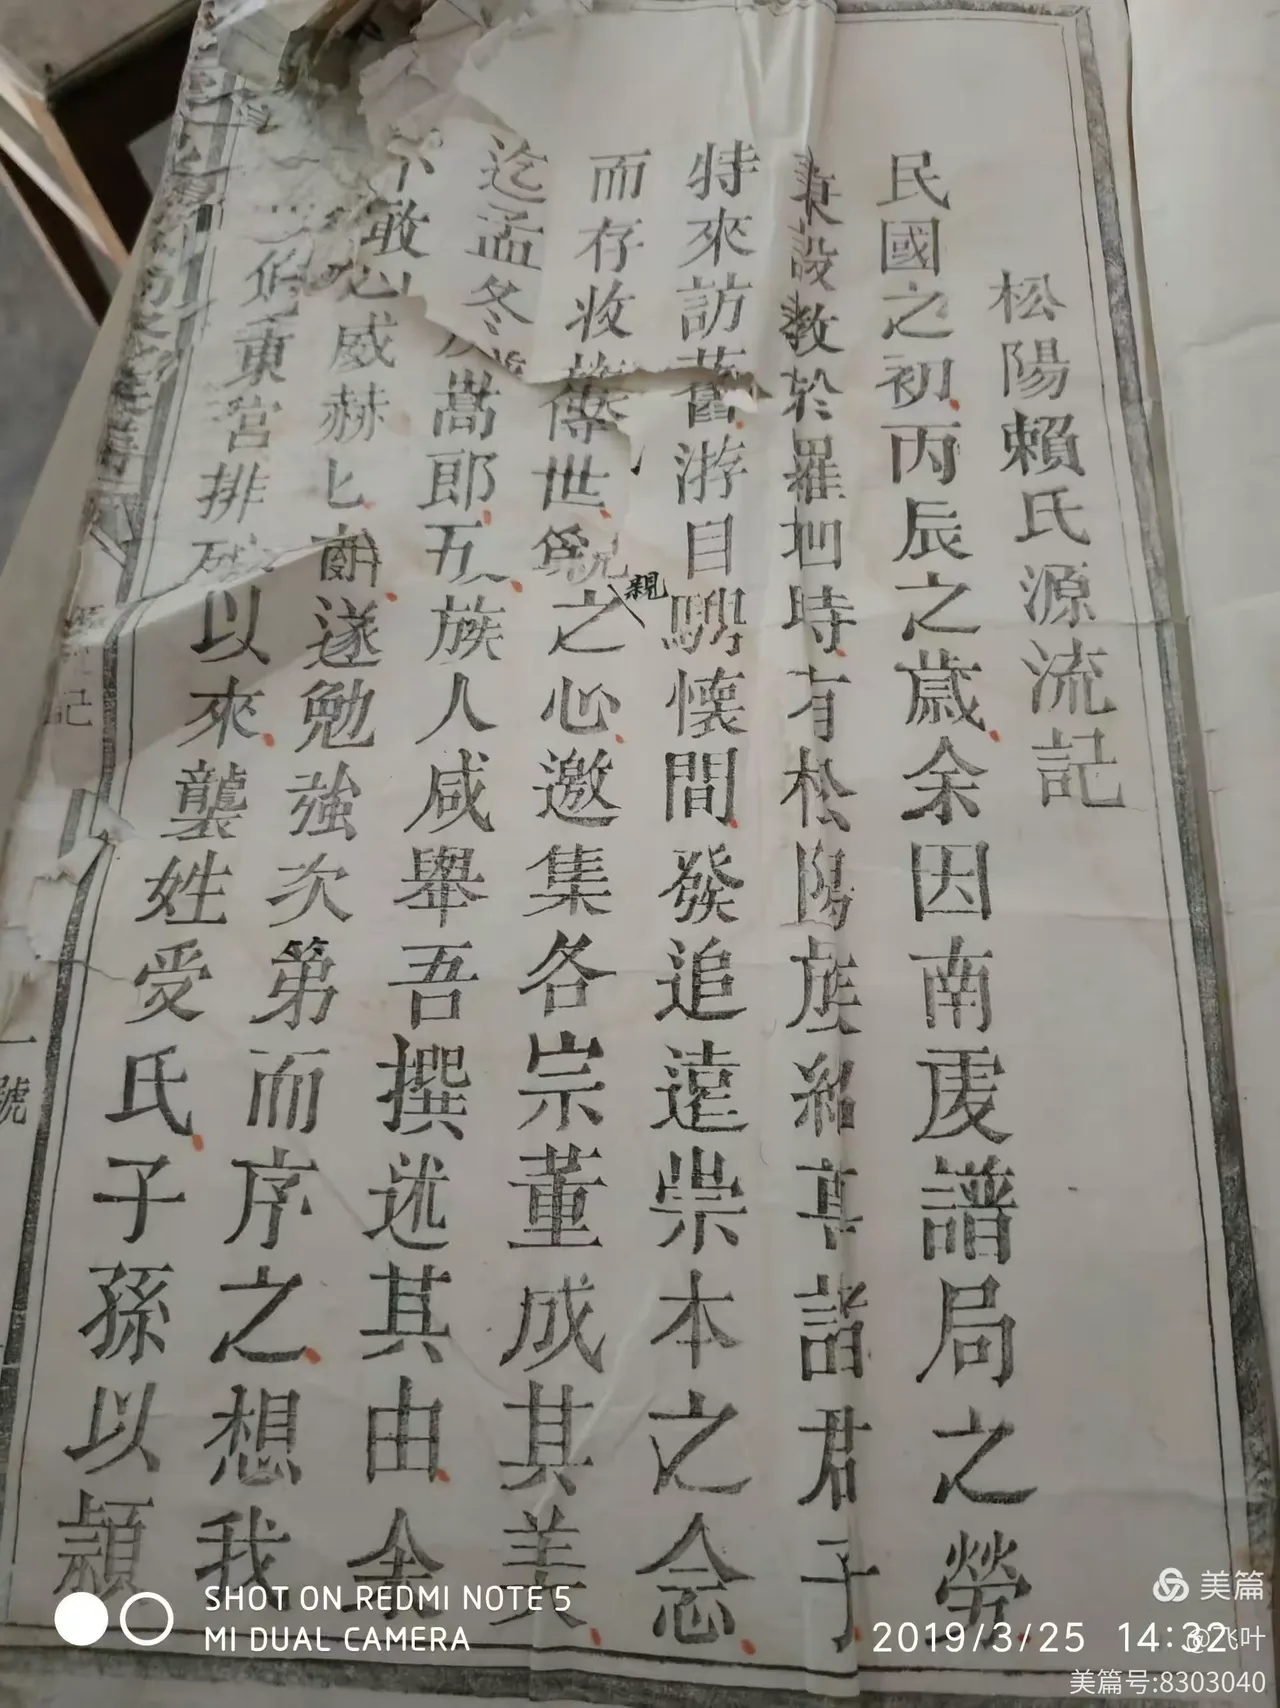 松陽賴氏源流記
民國之初丙辰之歲余因南虔譜局之勞
兼設教於羅㘭時有松陽族紹享諸君子
特來訪舊游目騁懷間發追遠崇本之念
而存收族傳世爲親之心邀集各宗董成其美
親
迄孟冬嵩郎五族人咸舉吾撰述其由余
不敢以威赫匕辭遂勉強次第而序之想我
重宫排以來襲姓受氏子孫以潁
記
一號
SHOT ON REDMI NOTE 5
MI DUAL CAMERA
2019/3/25 14:32
美篇
@飞叶
美篇号:8303040